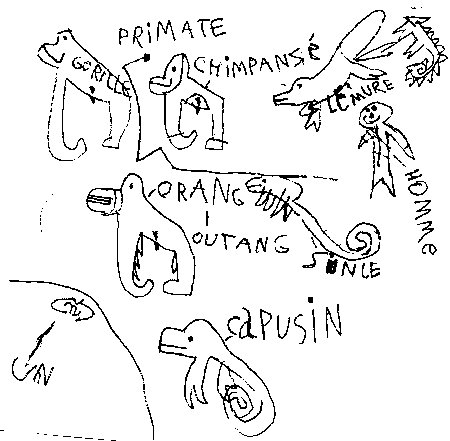 PRIMATE
GORILLE
CHIMPANSÉ
LÉMURE
HOMME
ORANG
OUTANG
SINLE
CAPUSIN
UN